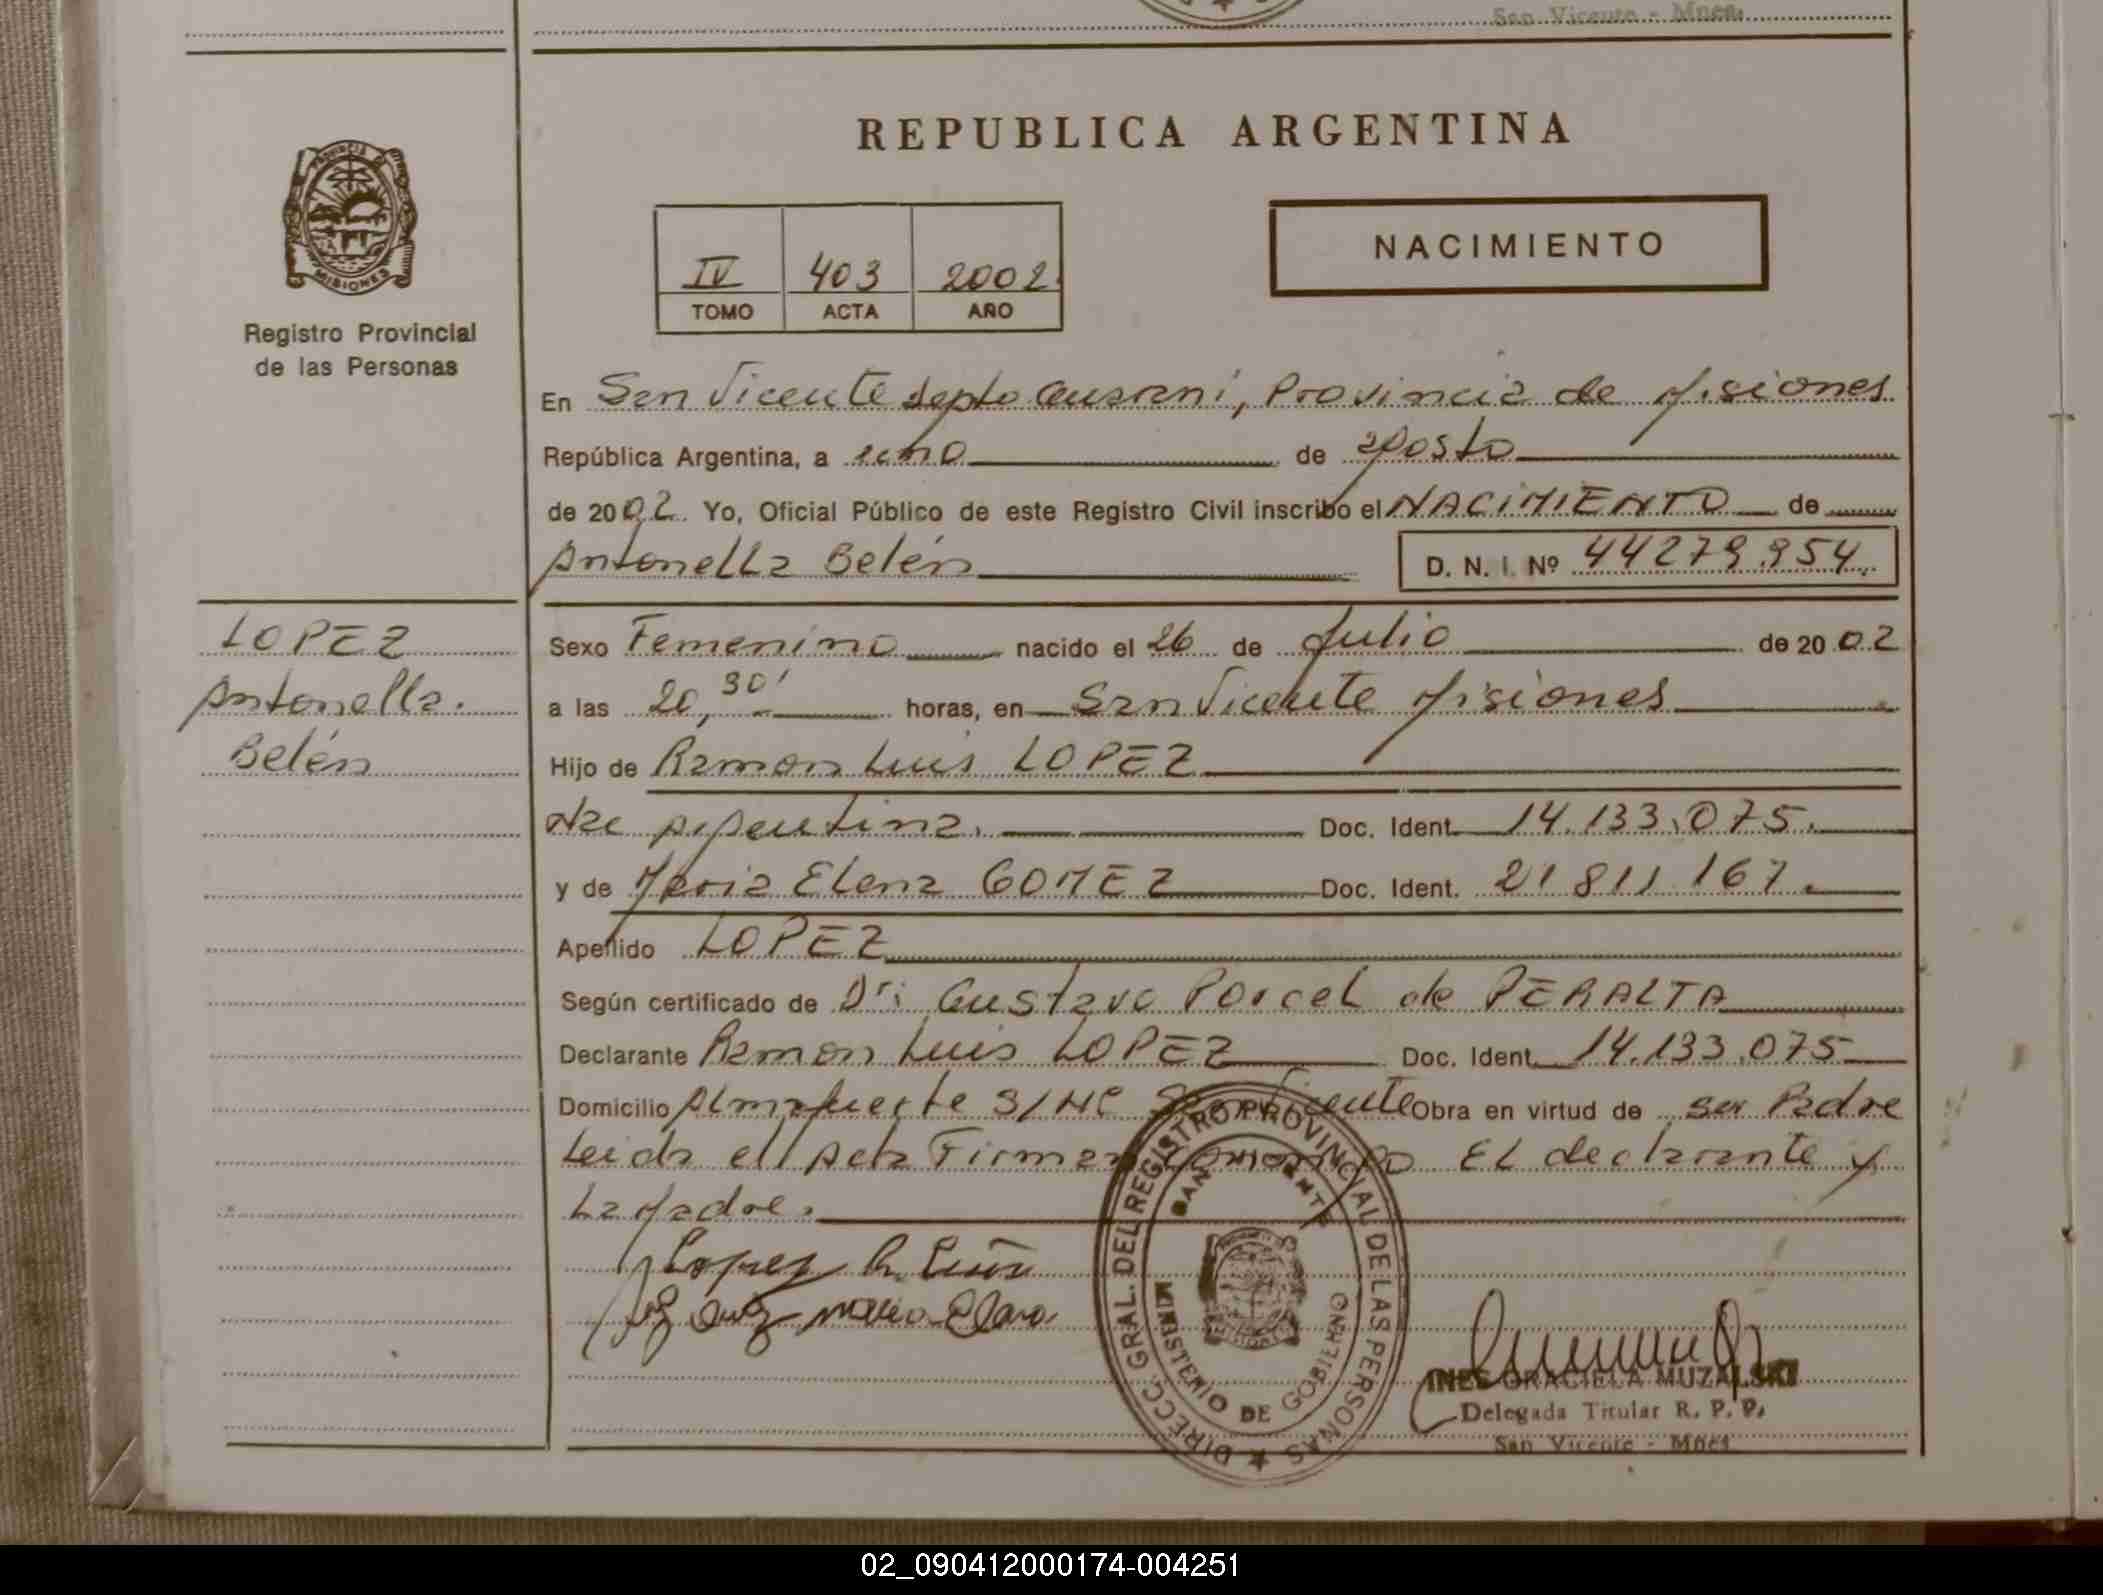 San Vicente - Mnes.
REPUBLICA ARGENTINA
PROVINCIA DE
MISIONES
Registro Provincial
de las Personas
IV 403 2002
TOMO ACTA AÑO
NACIMIENTO
En San Vicente Depto Guarani, Provincia de Misiones
República Argentina, a uno de agosto
de 2002. Yo, Oficial Público de este Registro Civil inscribo el NACIMIENTO de
Antonella Belén D. N. I. Nº 44279.954.
LOPEZ
Antonella.
Belén
Sexo Femenino nacido el 26 de Julio de 2002
a las 20,30' horas, en San Vicente Misiones
Hijo de Ramon Luis LOPEZ
Nac Argentina. Doc. Ident. 14.133.075.
y de Maria Elena GOMEZ Doc. Ident. 21 811 167.
Apellido LOPEZ
Según certificado de Dr: Gustavo Porcel de PERALTA
Declarante Ramon Luis LOPEZ Doc. Ident. 14.133.075
Domicilio Almafuerte S/Nº San Vicente Obra en virtud de ser Padre
Leida el Acta Firman conmigo EL declarante y
La Madre.
Lopez R. Luis
Maria Elena
DIRECC. GRAL. DEL REGISTRO PROVINCIAL DE LAS PERSONAS
SAN VICENTE
MINISTERIO DE GOBIERNO
INES GRACIELA MUZALSKI
Delegada Titular R. P. P.
San Vicente - Mnes.
02_090412000174-004251